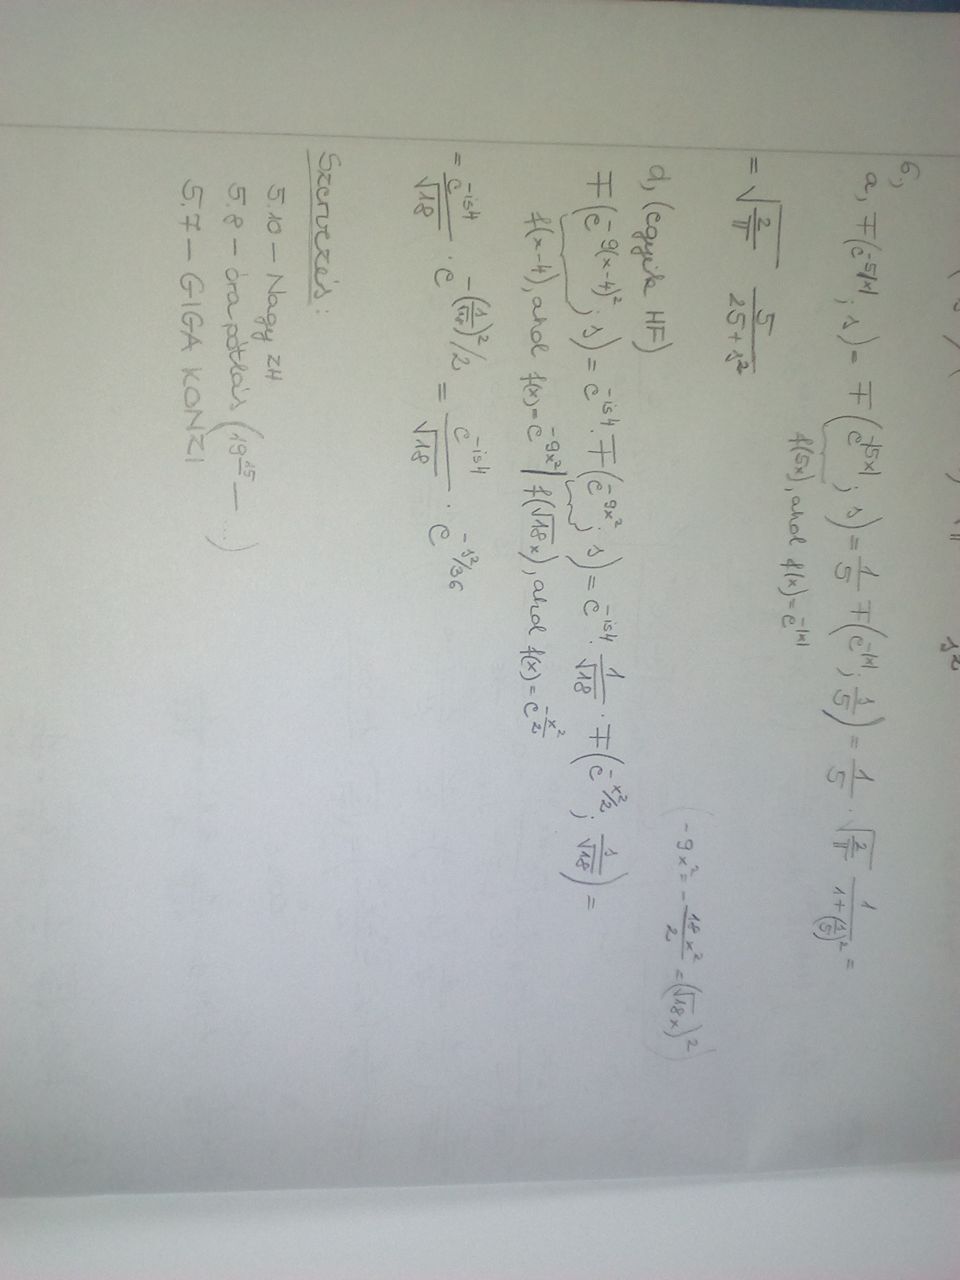 6.,
a, F(e^-5|x|; s) = F(e^-|5x|; s) = 1/5 F(e^-|x|; s/5) = 1/5 · √(2/π) 1/(1+(s/5)²) =
f(5x), ahol f(x) = e^-|x|
= √(2/π) 5/(25+s²)
(-9x² = -18x²/2 = (√18x)²)
d, (egyik HF)
F(e^-9(x-4)²; s) = e^-is4 · F(e^-9x²; s) = e^-is4 · 1/√18 · F(e^-x²/2; s/√18) =
f(x-4), ahol f(x) = e^-9x² | f(√18x), ahol f(x) = e^-x²/2
= e^-is4/√18 · e^-(s/√18)²/2 = e^-is4/√18 · e^-s²/36
Szervezés:
5.10 — Nagy ZH
5.8 — óra pótlás (19 15 — ...)
5.7 — GIGA KONZI